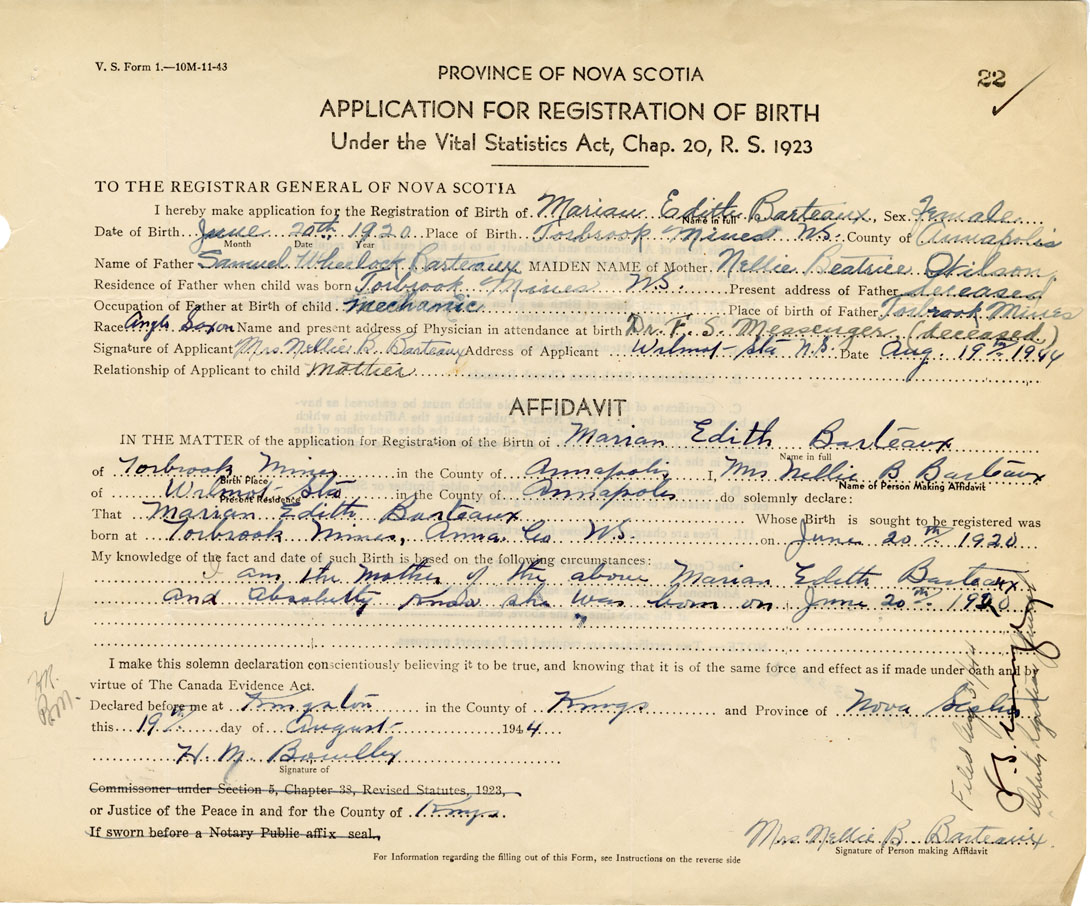 V. S. Form 1.—10M-11-43
PROVINCE OF NOVA SCOTIA
22
APPLICATION FOR REGISTRATION OF BIRTH
Under the Vital Statistics Act, Chap. 20, R. S. 1923
TO THE REGISTRAR GENERAL OF NOVA SCOTIA
I hereby make application for the Registration of Birth of Marian Edith Barteaux, Sex Female
Name in full
Date of Birth June 20th 1920 Place of Birth Torbrook Mines N.S. County of Annapolis
Month Date Year
Name of Father Samuel Wheelock Barteaux MAIDEN NAME of Mother Nellie Beatrice
Residence of Father when child was born Torbrook Mines N.S. Present address of Father deceased
Occupation of Father at Birth of child mechanic Place of birth of Father Torbrook Mines
Race Anglo Saxon Name and present address of Physician in attendance at birth Dr. F. S. Messenger (deceased)
Signature of Applicant Mrs Nellie B. Barteaux Address of Applicant Wilmot Sta N.S. Date Aug. 19th 1944
Relationship of Applicant to child Mother
AFFIDAVIT
IN THE MATTER of the application for Registration of the Birth of Marian Edith Barteaux
Name in full
of Torbrook Mines in the County of Annapolis I, Mrs Nellie B Barteaux
Birth Place
Name of Person Making Affidavit
of Wilmot Sta in the County of Annapolis do solemnly declare:
Present Residence
That Marian Edith Barteaux Whose Birth is sought to be registered was
born at Torbrook Mines, Anna. Co. N.S. on June 20th 1920
My knowledge of the fact and date of such Birth is based on the following circumstances:
I am the Mother of the above Marian Edith Barteaux
and absolutely know she was born on June 20th 1920
I make this solemn declaration conscientiously believing it to be true, and knowing that it is of the same force and effect as if made under oath and by
virtue of The Canada Evidence Act.
Declared before me at Kingston in the County of Kings and Province of Nova Scotia
this 19th day of August 1944
H. M.
Signature of
Commissoner under Section 5, Chapter 38, Revised Statutes, 1923,
or Justice of the Peace in and for the County of Kings.
If sworn before a Notary Public affix seal,
Mrs Nellie B. Barteaux
Signature of Person making Affidavit
For Information regarding the filling out of this Form, see Instructions on the reverse side
Filed Aug
Deputy Registrar General